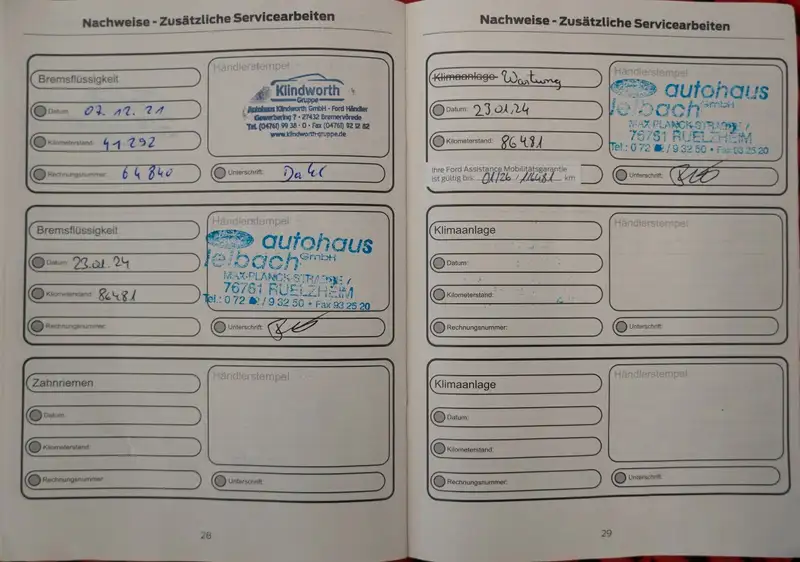 Nachweise - Zusätzliche Servicearbeiten
Bremsflüssigkeit
Datum: 07.12.21
Kilometerstand: 41292
Rechnungsnummer: 64840
Händlerstempel
Klindworth
Gruppe
Autohaus Klindworth GmbH - Ford Händler
Gewerbering 7 - 27432 Bremervörde
Tel. (04761) 99 38 - 0 - Fax (04761) 92 12 82
www.klindworth-gruppe.de
Unterschrift:
Bremsflüssigkeit
Datum: 23.01.24
Kilometerstand: 86481
Rechnungsnummer:
Händlerstempel
autohaus
leibach GmbH
MAX-PLANCK-STRASSE
76761 RUELZHEIM
Tel.: 0 72 / 9 32 50 • Fax 93 25 20
Unterschrift:
Zahnriemen
Datum:
Kilometerstand:
Rechnungsnummer:
Händlerstempel
Unterschrift:
28
Nachweise - Zusätzliche Servicearbeiten
Klimaanlage Wartung
Datum: 23.01.24
Kilometerstand: 86481
Ihre Ford Assistance Mobilitätsgarantie
ist gültig bis: 01/26 / 116481 km
Händlerstempel
autohaus
leibach GmbH
MAX-PLANCK-STRASSE 7
76761 RUELZHEIM
Tel.: 0 72 / 9 32 50 • Fax 93 25 20
Unterschrift:
Klimaanlage
Datum:
Kilometerstand:
Rechnungsnummer:
Händlerstempel
Unterschrift:
Klimaanlage
Datum:
Kilometerstand:
Rechnungsnummer:
Händlerstempel
Unterschrift:
29